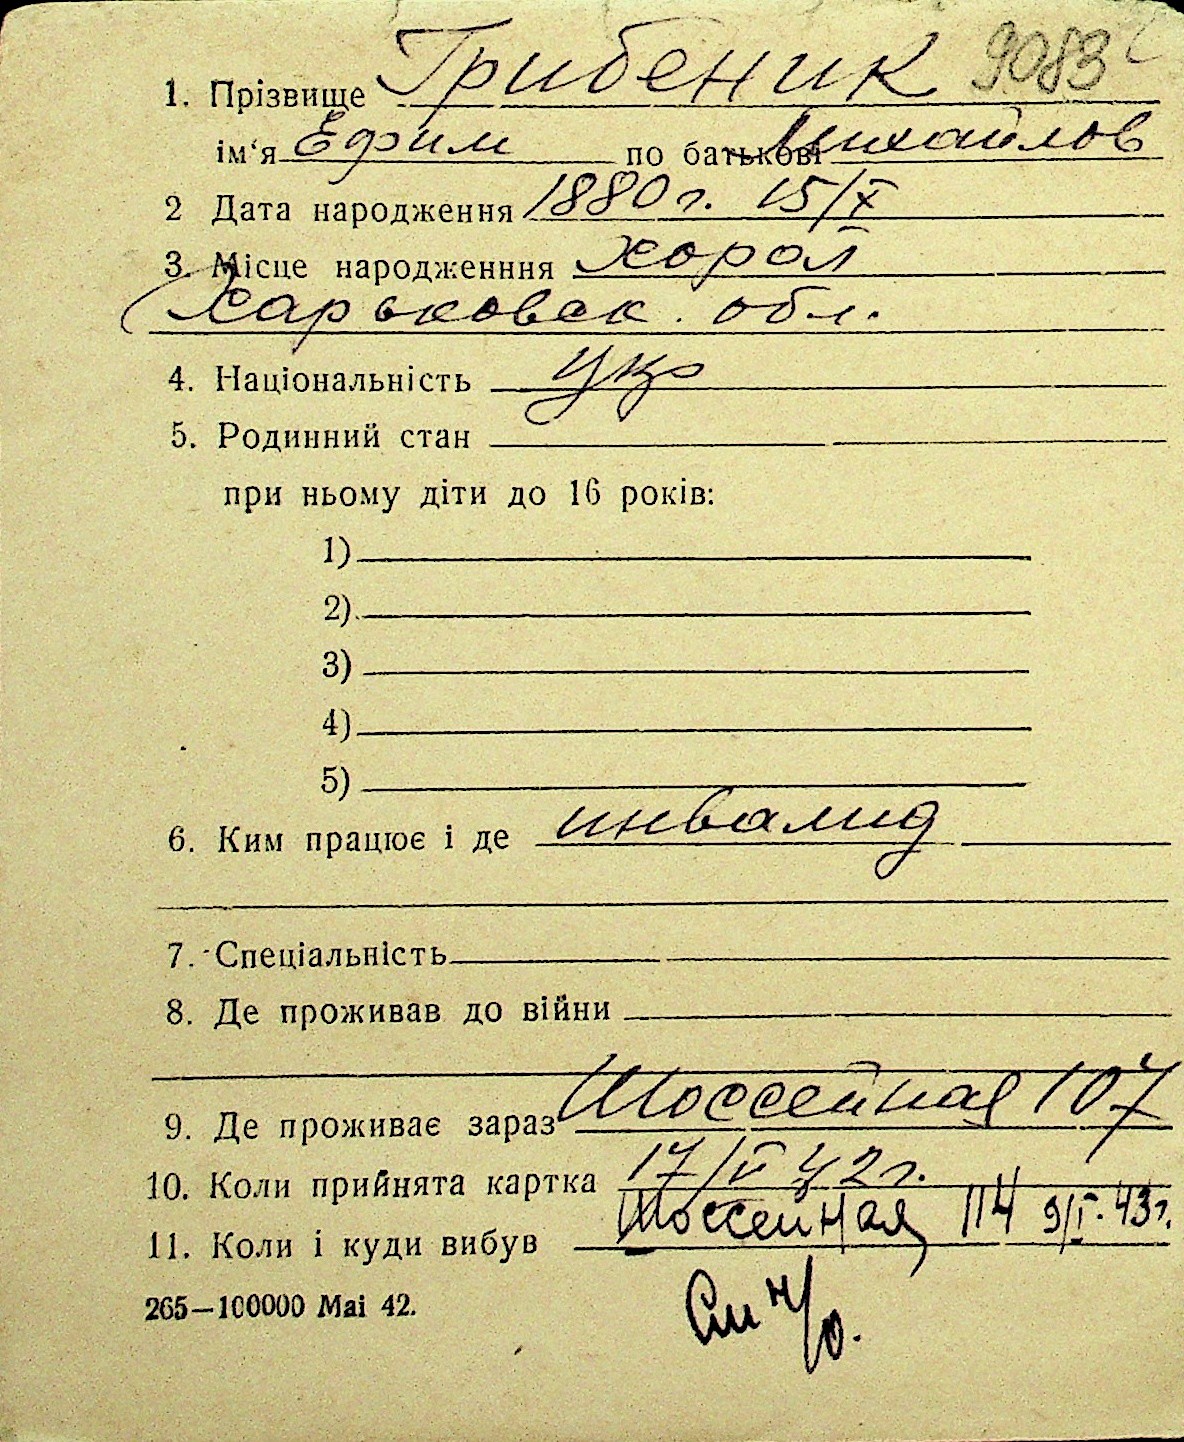 1. Прізвище Грибеник 9083
ім'я Ефим по батькові Михайлов
2 Дата народження 1880 г. 15/X
3. Місце народженння Хорол
Харьковск. обл.
4. Національність укр
5. Родинний стан
при ньому діти до 16 років:
1)
2)
3)
4)
5)
6. Ким працює і де инвалид
7. Спеціальність
8. Де проживав до війни
9. Де проживає зараз Шоссейная 107
10. Коли прийнята картка 17/VI 42 г.
11. Коли і куди вибув Шоссейная 114 9/I. 43 г.
265—100000 Mai 42.
См н/о.